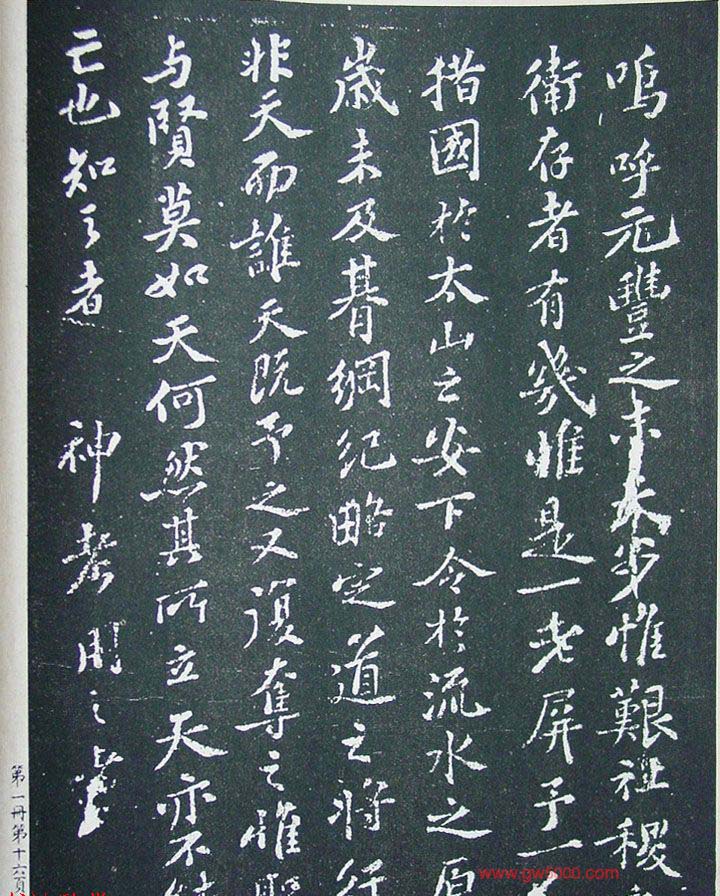 嗚呼元豐之末天步惟艱社稷
衛存者有幾惟是一老屏予一人
措國於太山之安下令於流水之原
歲未及朞綱紀略定道之將行
非天而誰天既予之又復奪之惟聖
与賢莫如天何然其所立天亦不能
亡也知之者 神考用之者
第一冊第十六頁
www.gw5000.com